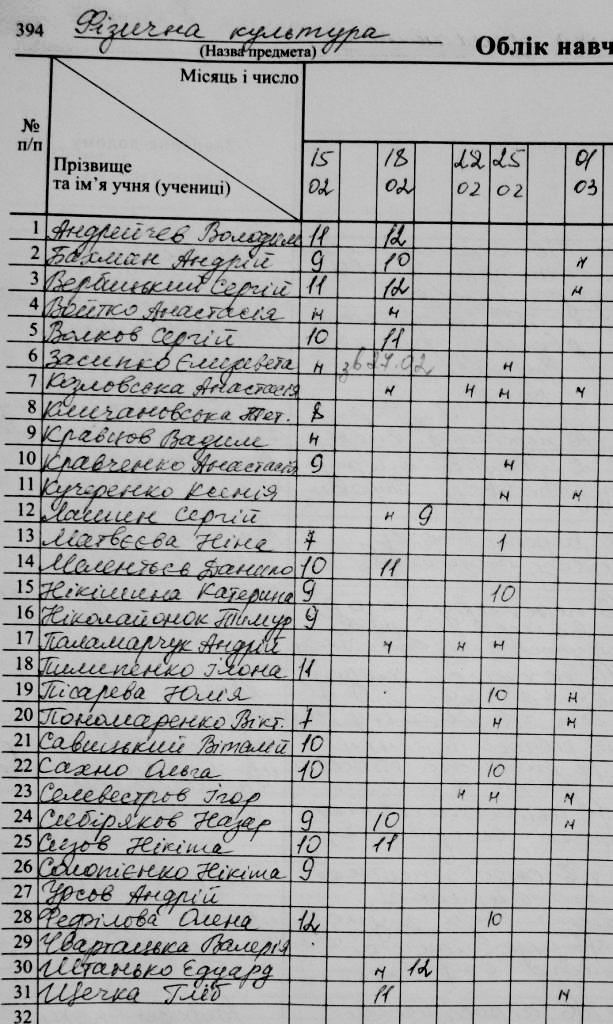 394 Фізична культура
(Назва предмета) Облік навч
Місяць і число
№ п/п
Прізвище та ім'я учня (учениці)
15 18 22 25 01
02 02 02 02 03
1 Андрейчев Володим 11 12
2 Бахман Андрій 9 10 н
3 Вербицький Сергій 11 12 н
4 Войтко Анастасія н н
5 Волков Сергій 10 11
6 Засипко Єлизавета н зв 27.02 н
7 Козловська Анастасія н н н н
8 Тет. 8
9 Кравцов Вадим н
10 Кравченко Анастасія 9 н
11 Кучеренко Ксенія н н
12 Лашин Сергій н 9
13 Матвєєва Ніна 7 1
14 Данило 10 11
15 Нікішина Катерина 9 10
16 Ніколайонок Тимур 9
17 Паламарчук Андрій н н н
18 Пилипенко Ілона 11
19 Пісарева Юлія 10 н
20 Пономаренко Вікт. 7 н н
21 Савицький Віталій 10
22 Сахно Ольга 10 10
23 Селевестров Ігор н н н
24 Сибіряков Назар 9 10 н
25 Сизов Нікіта 10 11
26 Солопієнко Нікіта 9
27 Урсов Андрій
28 Фефілова Олена 12 10
29 Чвартацька Валерія
30 Штанько Едуард н 12
31 Щечка Гліб 11 н
32